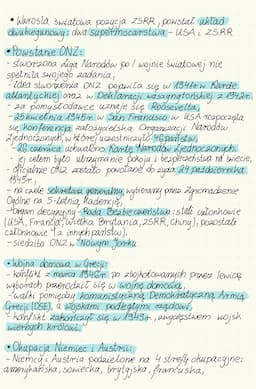 • Wzrosła światowa pozycja ZSRR, powstał układ
dwubiegunowy: dwa supermocarstwa - USA i ZSRR.
• Powstanie ONZ:
- stworzona Liga Narodów po I wojnie światowej nie
spełniła swojego zadania,
- idea stworzenia ONZ pojawiła się w 1941r w Karcie
atlantyckiej oraz w Deklaracji waszyngtońskiej z 1942r.
- za pomysłodawcę uznaje się Roosevelta,
- 25 kwietnia 1945r. w San Francisco w USA rozpoczęła
się konferencja założycielska Organizacji Narodów
Zjednoczonych, w której uczestniczyło 46 państw,
- 26 czerwca uchwalono Kartę Narodów Zjednoczonych.
- jej celem było utrzymanie pokoju i bezpieczeństwa na świecie,
oficjalnie ONZ zostało powołane do życia 24 października
1945r.
- na czele sekretarz generalny, wybierany przez Zgromadzenie
Ogólne na 5-letnią kadencję,
- organ decyzyjny - Rada Bezpieczeństwa: stali członkowie
(USA, Francja, Wielka Brytania, ZSRR, Chiny), pozostali
członkowie z innych państw).
- siedziba ONZ w Nowym Jorku
• Wojna domowa w Grecji:
- konflikt z marca 1946r. po zbojkotowanych przez lewicę
wyborach przerodził się w wojnę domową,
- walki pomiędzy komunistyczną Demokratyczną Armią
Grecji (DSE), a wojskami podległymi rządowi,
- konflikt zakończył się w 1949r. zwycięstwem wojsk
wiernych królowi.
• Okupacja Niemiec i Austrii:
- Niemcy i Austria podzielone na 4 strefy okupacyjne:
amerykańska, sowiecka, brytyjska, francuska,